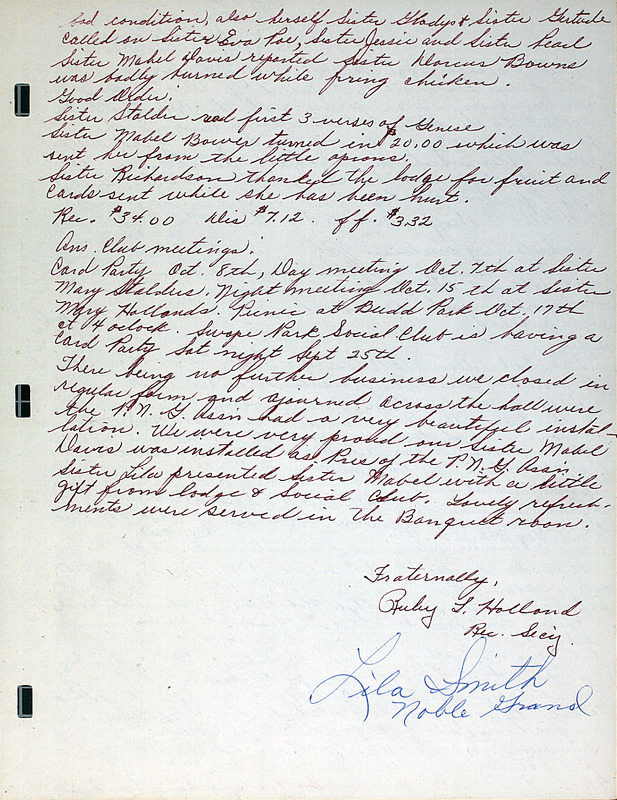 bad condition, also herself Sister Gladys & Sister Gertude
called on Sister Eva Poe, Sister Jessie and Sister Pearl
Sister Mabel Davis reported Sister Dorcus Bowns
was badly burned while fring chicken.
Good Order.
Sister Stalder read first 3 verses of Genese
Sister Mabel Bower turned in $20.00 which was
sent her from the little aprons.
Sister Richardson thanked the lodge for fruit and
Cards sent while she has been hurt.
Rec. $34.00 Dis $7.12. ff. $3.32
Ans. Club meetings.
Card Party Oct. 8th, Day meeting Oct. 7th at Sister
Mary Stalders. Night meeting Oct. 15th at Sister
Mary Hollands. Picnic at Budd Park Oct. 17th
at 4 oclock. Swope Park Social Club is having a
Card Party Sat night Sept 25th.
There being no further business we closed in
regular form and ajourned across the hall were
the P. N. G. Assn had a very beautyful instal-
lation. We were very proud our Sister Mabel
Davis was installed as Pres of the P. N. G. Assn.
Sister Lila presented Sister Mabel with a little
Gift from lodge & Social Club. Lovely refresh-
ments were served in the Banquet room.
Fraternally,
Ruby L. Holland
Rec. Secy.
Lila Smith
Noble Grand